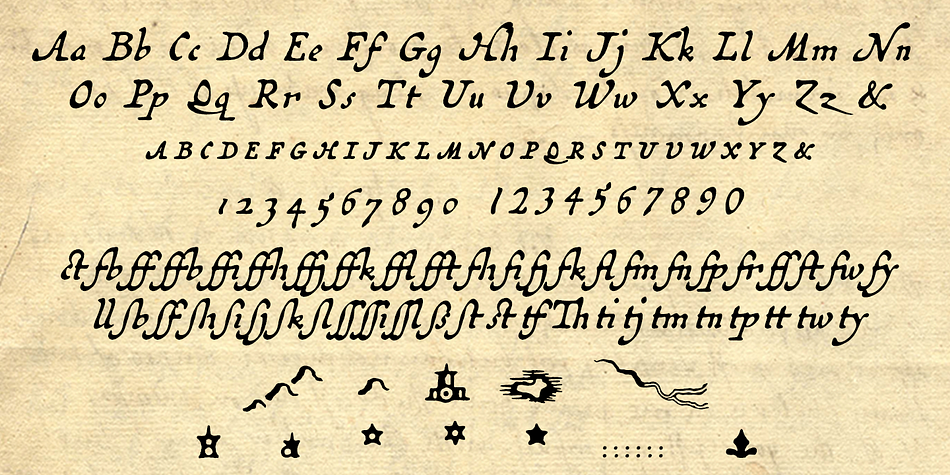 Aa Bb Cc Dd Ee Ff Gg Hh Ii Jj Kk Ll Mm Nn
Oo Pp Qq Rr Ss Tt Uu Vv Ww Xx Yy Zz &
A B C D E F G H I J K L M N O P Q R S T U V W X Y Z &
1 2 3 4 5 6 7 8 9 0 1 2 3 4 5 6 7 8 9 0
ct fb ff ffb ffi ffh ffj ffk ffl fft fh fi fj fk fl fm fn fp fr ff ft fw fy
ll ſb ſſ ſh ſi ſj ſk ſl ſſ ſſi ſſl ß ſt st tf Th ti tj tm tn tp tt tw ty